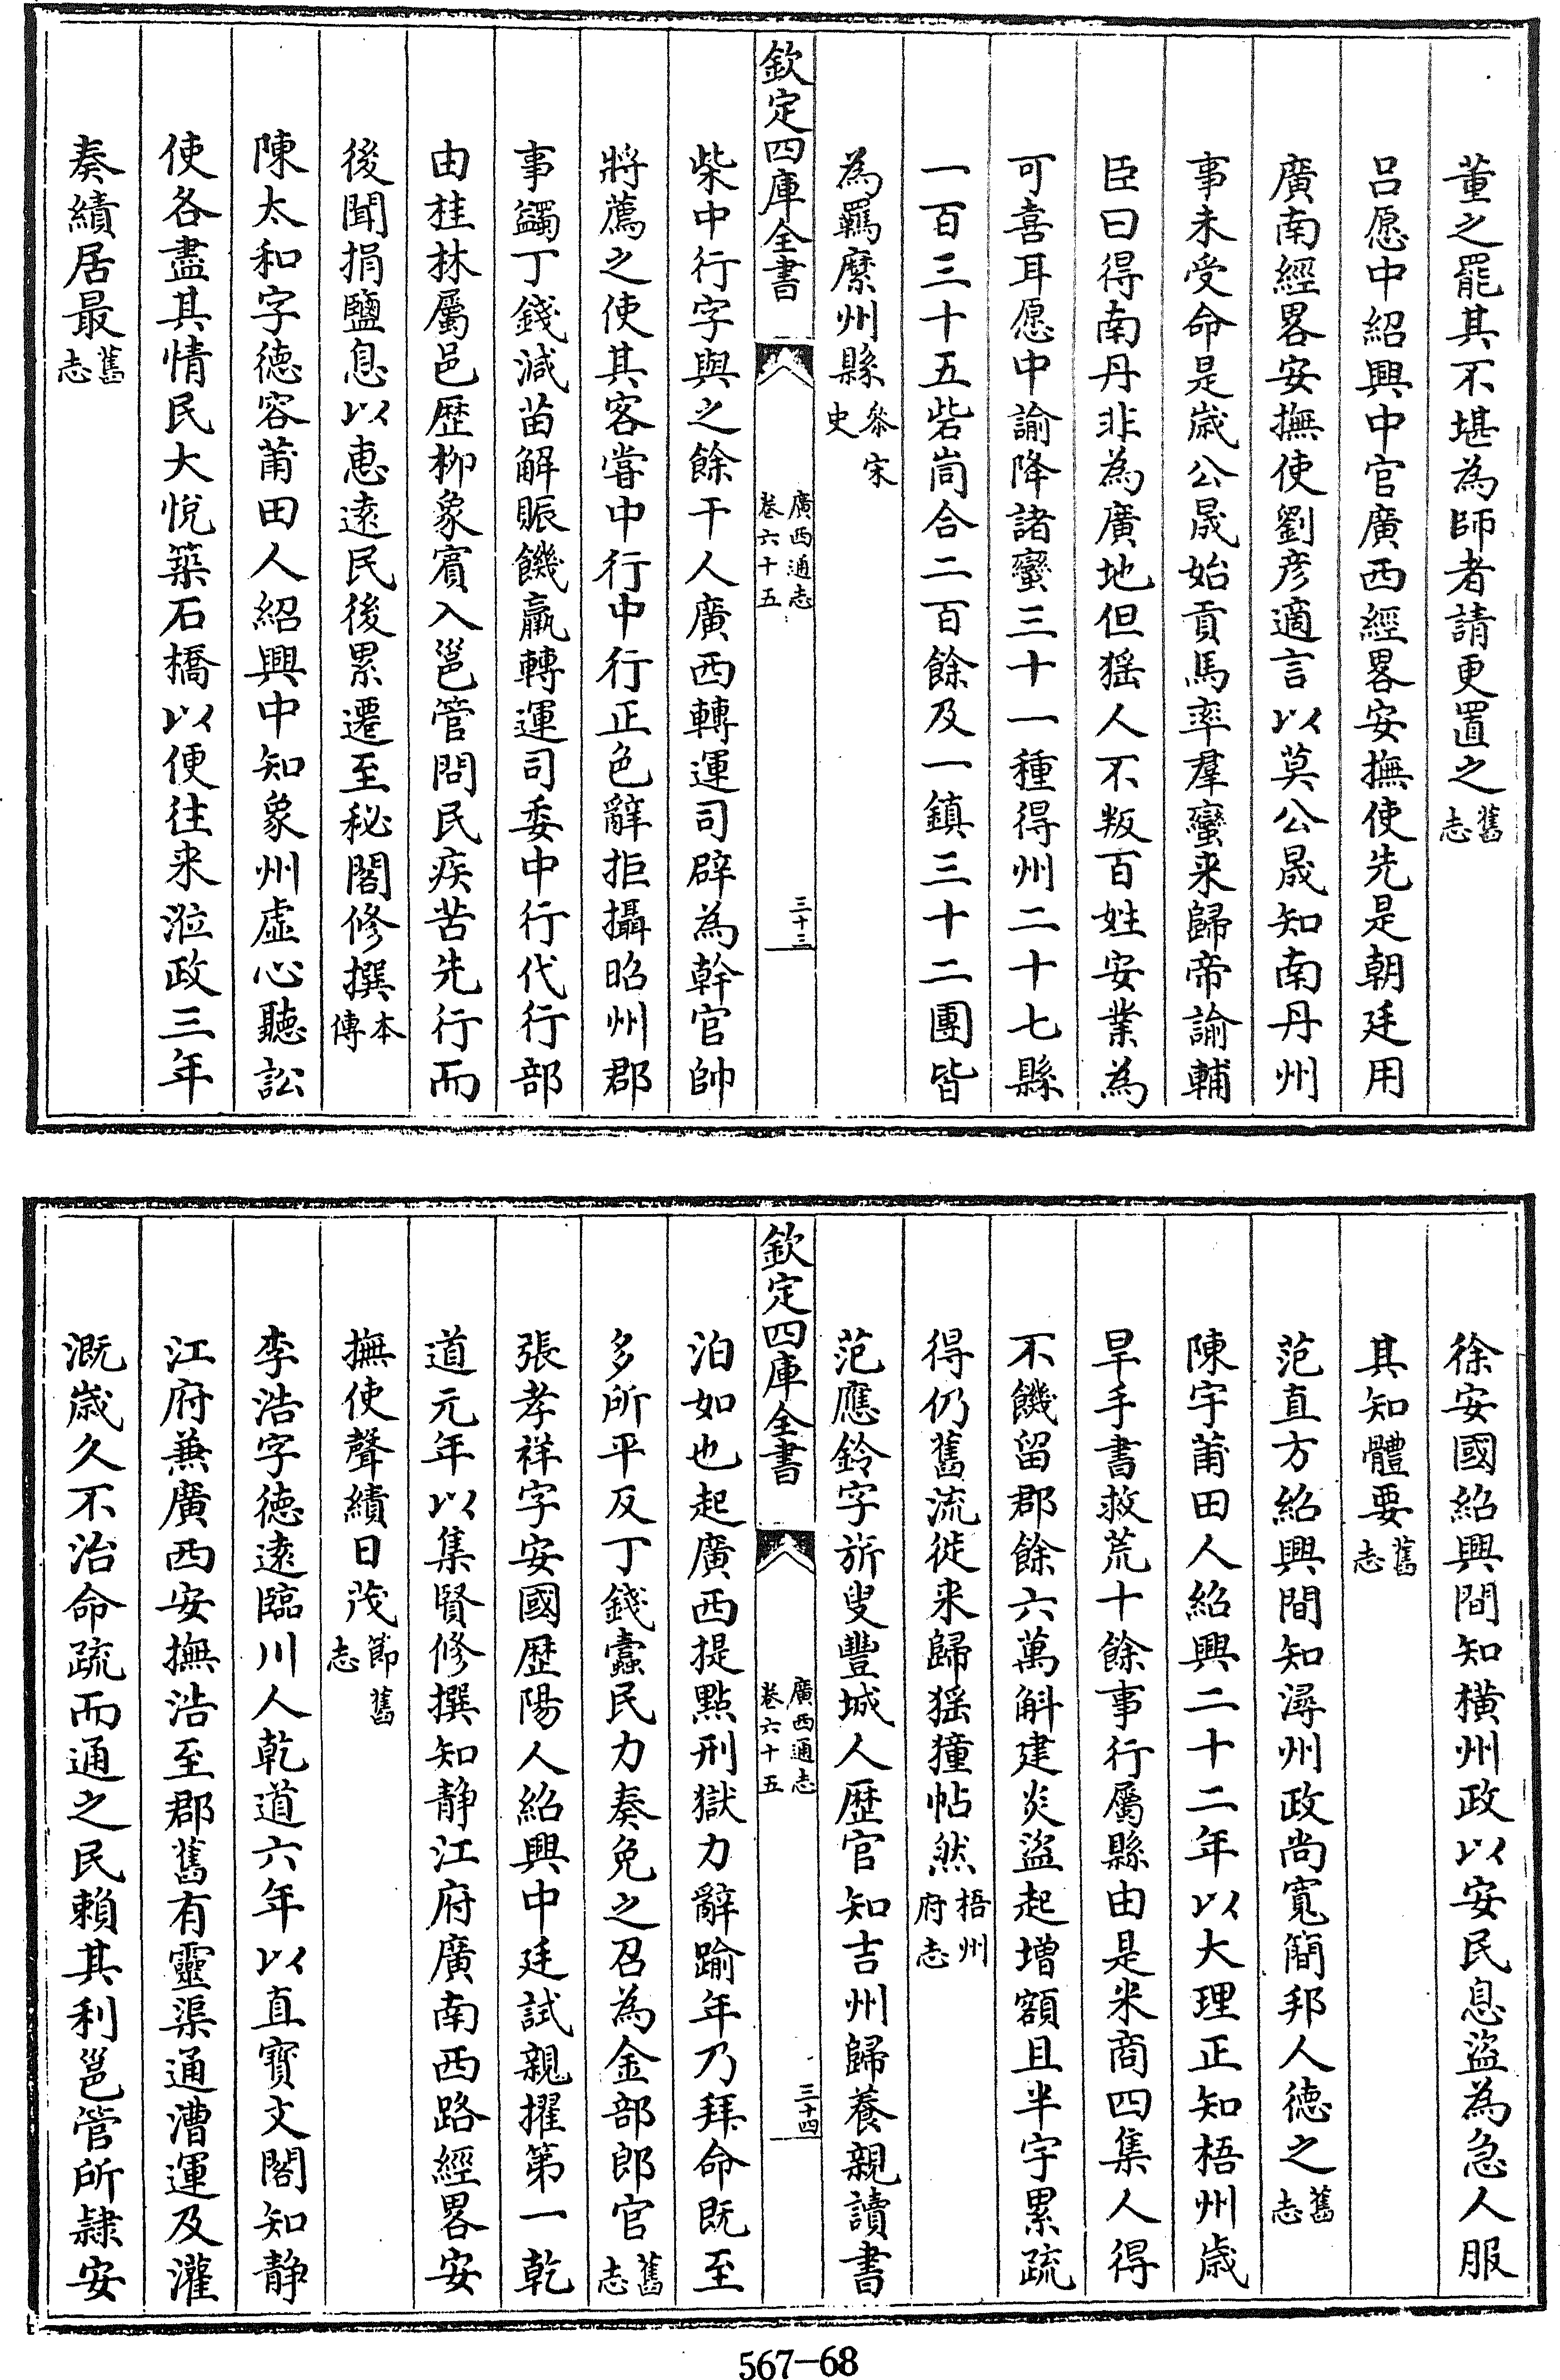 董之罷其不堪為師者請更置之舊志
呂愿中紹興中官廣西經畧安撫使先是朝廷用
廣南經畧安撫使劉彦適言以莫公晟知南丹州
事未受命是歲公晟始貢馬率羣蠻来歸帝諭輔
臣曰得南丹非為廣地但猺人不叛百姓安業為
可喜耳愿中諭降諸蠻三十一種得州二十七縣
一百三十五砦峝合二百餘及一鎮三十二團皆
為羈縻州縣叅宋史
欽定四庫全書
廣西通志
卷六十五
三十三
柴中行字與之餘干人廣西轉運司辟為幹官帥
將薦之使其客嘗中行中行正色辭拒攝昭州郡
事蠲丁錢減苗解賑饑羸轉運司委中行代行部
由桂林屬邑歴柳象賓入邕管問民疾苦先行而
後聞捐鹽息以惠逺民後累遷至秘閣修撰本傳
陳太和字德容莆田人紹興中知象州虛心聽訟
使各盡其情民大悅築石橋以便往来涖政三年
奏績居最舊志
徐安國紹興間知横州政以安民息盜為急人服
其知體要舊志
范直方紹興間知潯州政尚寛簡邦人德之舊志
陳宇莆田人紹興二十二年以大理正知梧州歲
旱手書救荒十餘事行屬縣由是米商四集人得
不饑留郡餘六萬斛建炎盜起増額且半宇累疏
得仍舊流徙来歸猺獞帖然梧州府志
范應鈴字旂叟豐城人歴官知吉州歸養親讀書
欽定四庫全書
廣西通志
卷六十五
三十四
泊如也起廣西提點刑獄力辭踰年乃拜命既至
多所平反丁錢蠧民力奏免之召為金部郎官舊志
張孝祥字安國歴陽人紹興中廷試親擢第一乾
道元年以集賢修撰知静江府廣南西路經畧安
撫使聲績日茂節舊志
李浩字徳逺臨川人乾道六年以直寳文閣知静
江府兼廣西安撫浩至郡舊有靈渠通漕運及灌
溉歲久不治命疏而通之民賴其利邕管所隸安
567-68